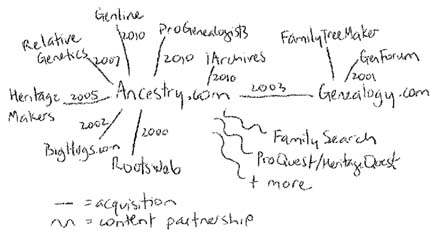 Genline
2010
ProGenealogists
2010
iArchives
2010
Relative
Genetics
2007
Heritage
Makers
2005
Ancestry.com
2003
Genealogy.com
FamilyTreeMaker
GenForum
2001
2002
BigHugs.com
2000
RootsWeb
FamilySearch
ProQuest/HeritageQuest
+ more
— = acquisition
~ = content partnership